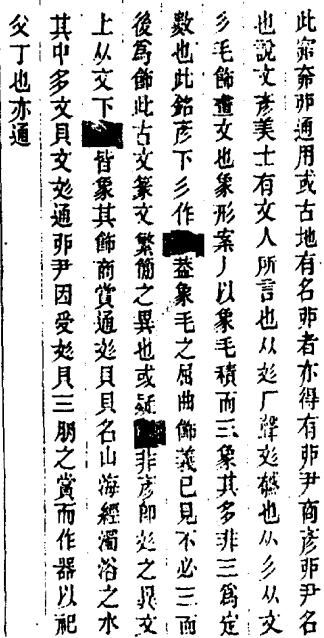 此窮奔邢通用或古地有名邢者亦得有邢尹商彥邢尹名
也說文彥美士有文人所言也从彣厂聲彣䤁也从彡从文
彡毛飾畫文也象形案丿以象毛積而三象其多非三爲定
數也此銘彥下彡作蓋象毛之屈曲飾義已見不必三而
後爲飾此古文篆文繁簡之異也或疑非彥卽彣之異文
上从文下皆象其飾商賞通彣貝貝名山海經濁浴之水
其中多文貝文彣通邢尹因受彣貝三朋之賞而作器以祀
父丁也亦通